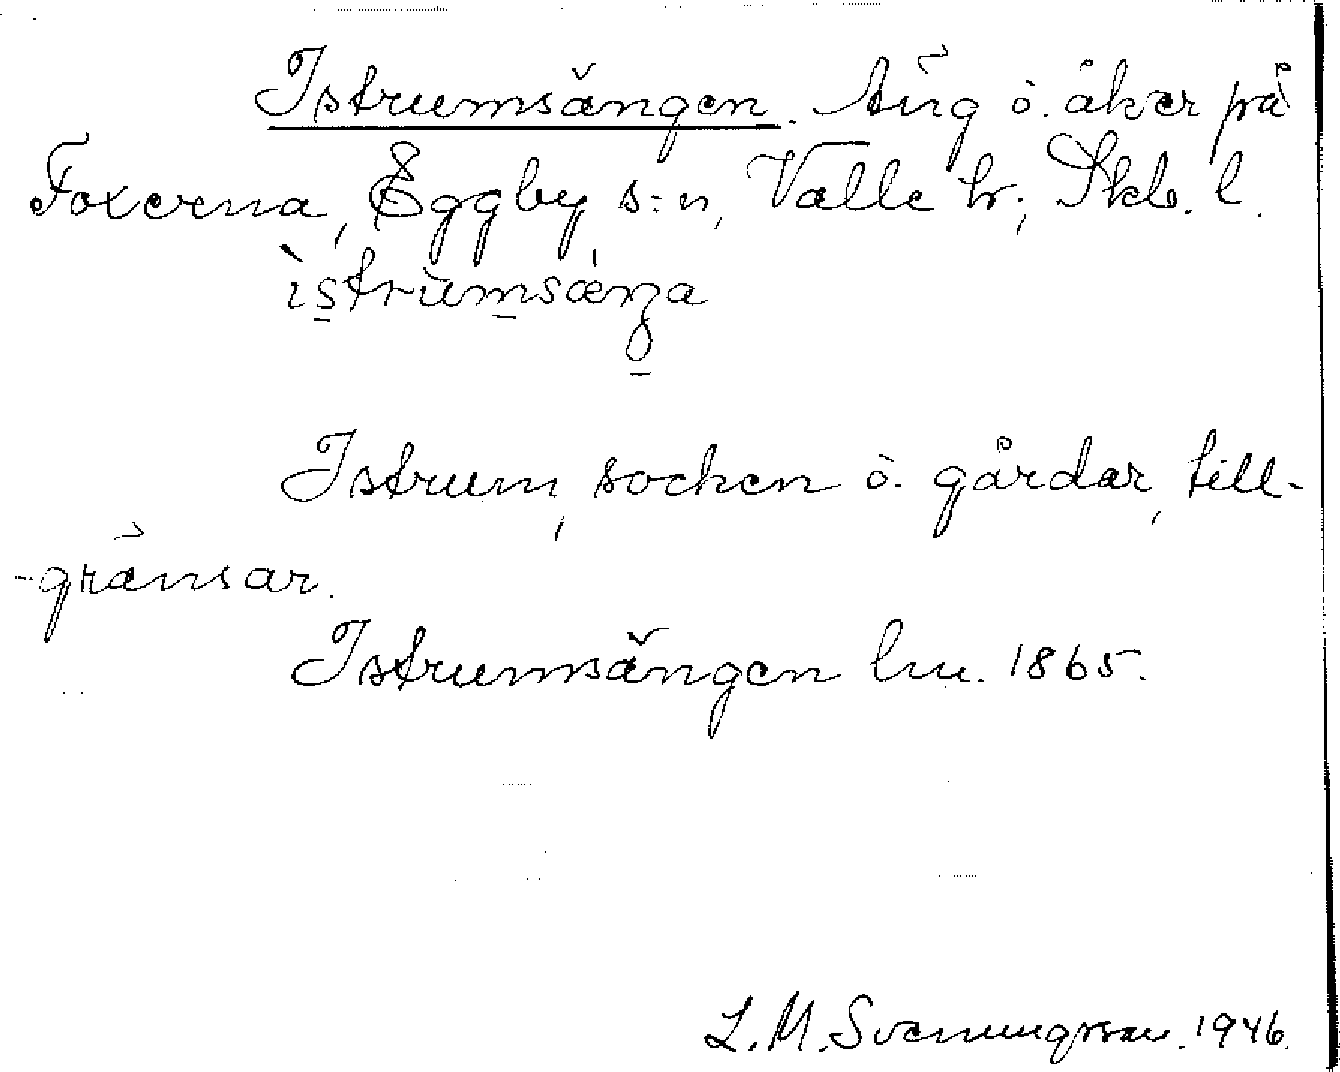 Istrumsängen. Äng o. åker på
Foxerna, Eggby s:n, Valle hr; Skb. l.
ìstrùmsæ̀ŋa
Istrum, socken o. gårdar, till-
-gränsar.
Istrumsängen lm. 1865.
L. M. Svenungsson. 1946.